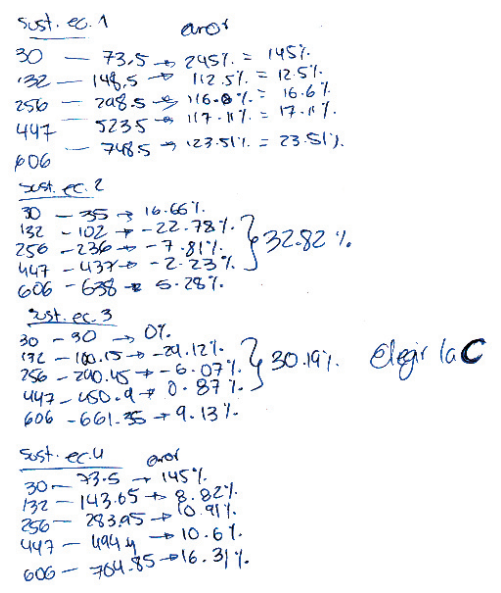 Sust. ec. 1 error
30 — 73.5 → 245% = 145%
132 — 148.5 → 112.5% = 12.5%
256 — 298.5 → 116.6% = 16.6%
447 523.5 → 117.11% = 17.11%
606 — 748.5 → 123.51% = 23.51%
Sust. ec. 2
30 — 35 → 16.66%
132 — 102 → -22.78%
256 — 236 → -7.81% } 32.82%
447 — 437 → -2.23%
606 — 638 → 5.28%
Sust. ec. 3
30 - 30 → 0%
132 - 100.15 → -24.12%
256 - 240.45 → -6.07% } 30.19% Elegir la C
447 - 450.9 → 0.87%
606 - 661.35 → 9.13%
Sust. ec. 4 error
30 — 73.5 → 145%
132 — 143.65 → 8.82%
256 — 283.95 → 10.91%
447 — 494.4 → 10.6%
606 — 704.85 → 16.31%